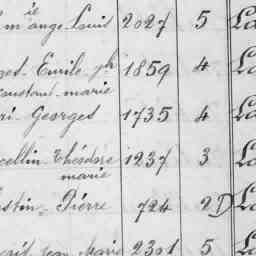 is
m ange Louis 2027 5 La
ges. Emile, ph 1859 4 La
Constant. marie
ri. Georges 1735 4 La
cellin Théodore 1237 3 La
marie
stin. Pierre 724 2 D La
Jean Marie 2301 5 La